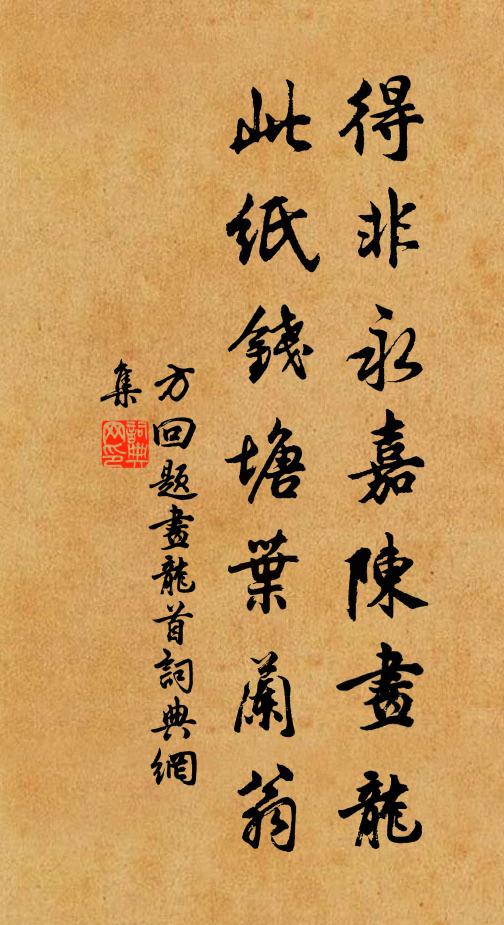 得非永嘉陳畫龍
此紙錢塘葉蘭翁
方回題畫龍首詞典網
集
詞典
网印